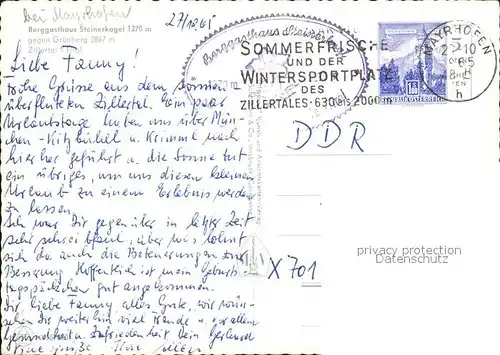 bei Mayrhofen
Berggasthaus Steinerkogel 1270 m
gegen Grünberg 2867 m
Zillertal Tirol
27/10 65
Berggasthaus Steinerkogel
SOMMERFRISCHE
UND DER
WINTERSPORTPLATZ
DES
ZILLERTALES·630 bis 2000 m
MAYRHOFEN
2·-10
65
8
REPUBLIK ÖSTERREICH
Liebe Fanny!
frohe Grüsse aus dem Sonnen
überfluteten Zillertal. Ein paar
Urlaubstage haben uns über Mün-
chen - Kitzbühel u Krimml nach
hierher geführt u. die Sonne tut
ein übriges, um uns diesen kleinen
Urlaub zu einem Erlebnis werden
zu lassen.
Ich war Dir gegenüber in letzter Zeit
sehr schreibfaul, aber was lohnt
sich da auch die Beteuerungen zur
Besserung. Hoffentlich ist mein Geburts-
tagspäckchen gut angekommen.
Dir liebe Fanny alles Gute, wir wün-
schen Dir weiterhin viel Freude u. vor allem
Gesundheit u. Zufriedenheit. Dein Gerhard
DDR
X 701
privacy protection
Datenschutz